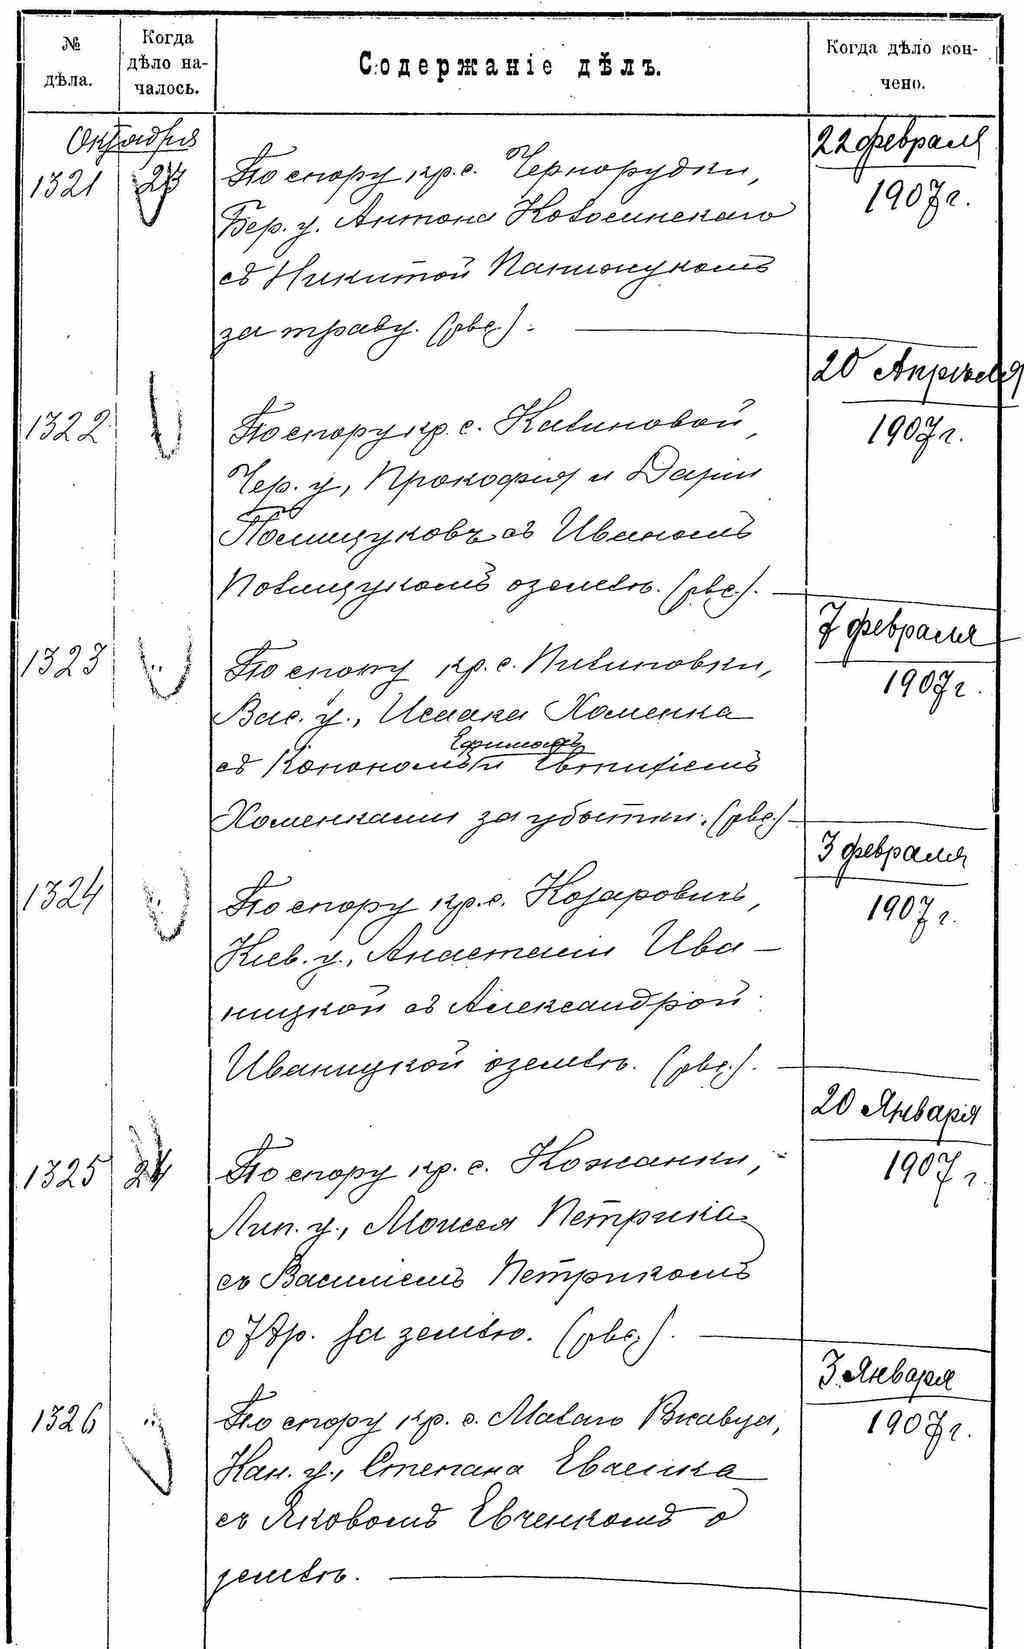 № дѣла.
Когда дѣло на-
чалось.
Содержаніе дѣлъ.
Когда дѣло кон-
чено.
Октября
1321 23 По спору кр. с. Чернорудки,
Бер. у. Антона
съ Никитой
за траву. (рвс.).
22 февраля
1907 г.
1322 По спору кр. с. Калиновой,
Чер. у., Прокофія и Даріи
Полищуковъ съ Иваномъ
Полищукомъ о землѣ. (рвс.).
20 Апрѣля
1907 г.
1323 По спору кр. с. Пилиповки,
Вас. у., Исаака Хоменка
Ефимомъ
съ Конономъ и Евтихіемъ
Хоменками за убытки. (рвс.)
7 февраля
1907 г.
1324 По спору кр. с. Козаровичъ,
Кіев. у., Анастасіи Ива-
ницкой съ Александрой
Иваницкой о землѣ. (рвс.).
3 февраля
1907 г.
1325 24 По спору кр. с. Кожанки,
Лип. у., Моисея Петрика
съ Василіемъ Петрикомъ
о 78р. за землю. (рвс.).
20 Января
1907 г.
1326 По спору кр. с. Малаго
Кан. у., Степана Евченка
съ Яковомъ Евченкомъ о
землѣ.
3 Января
1907 г.